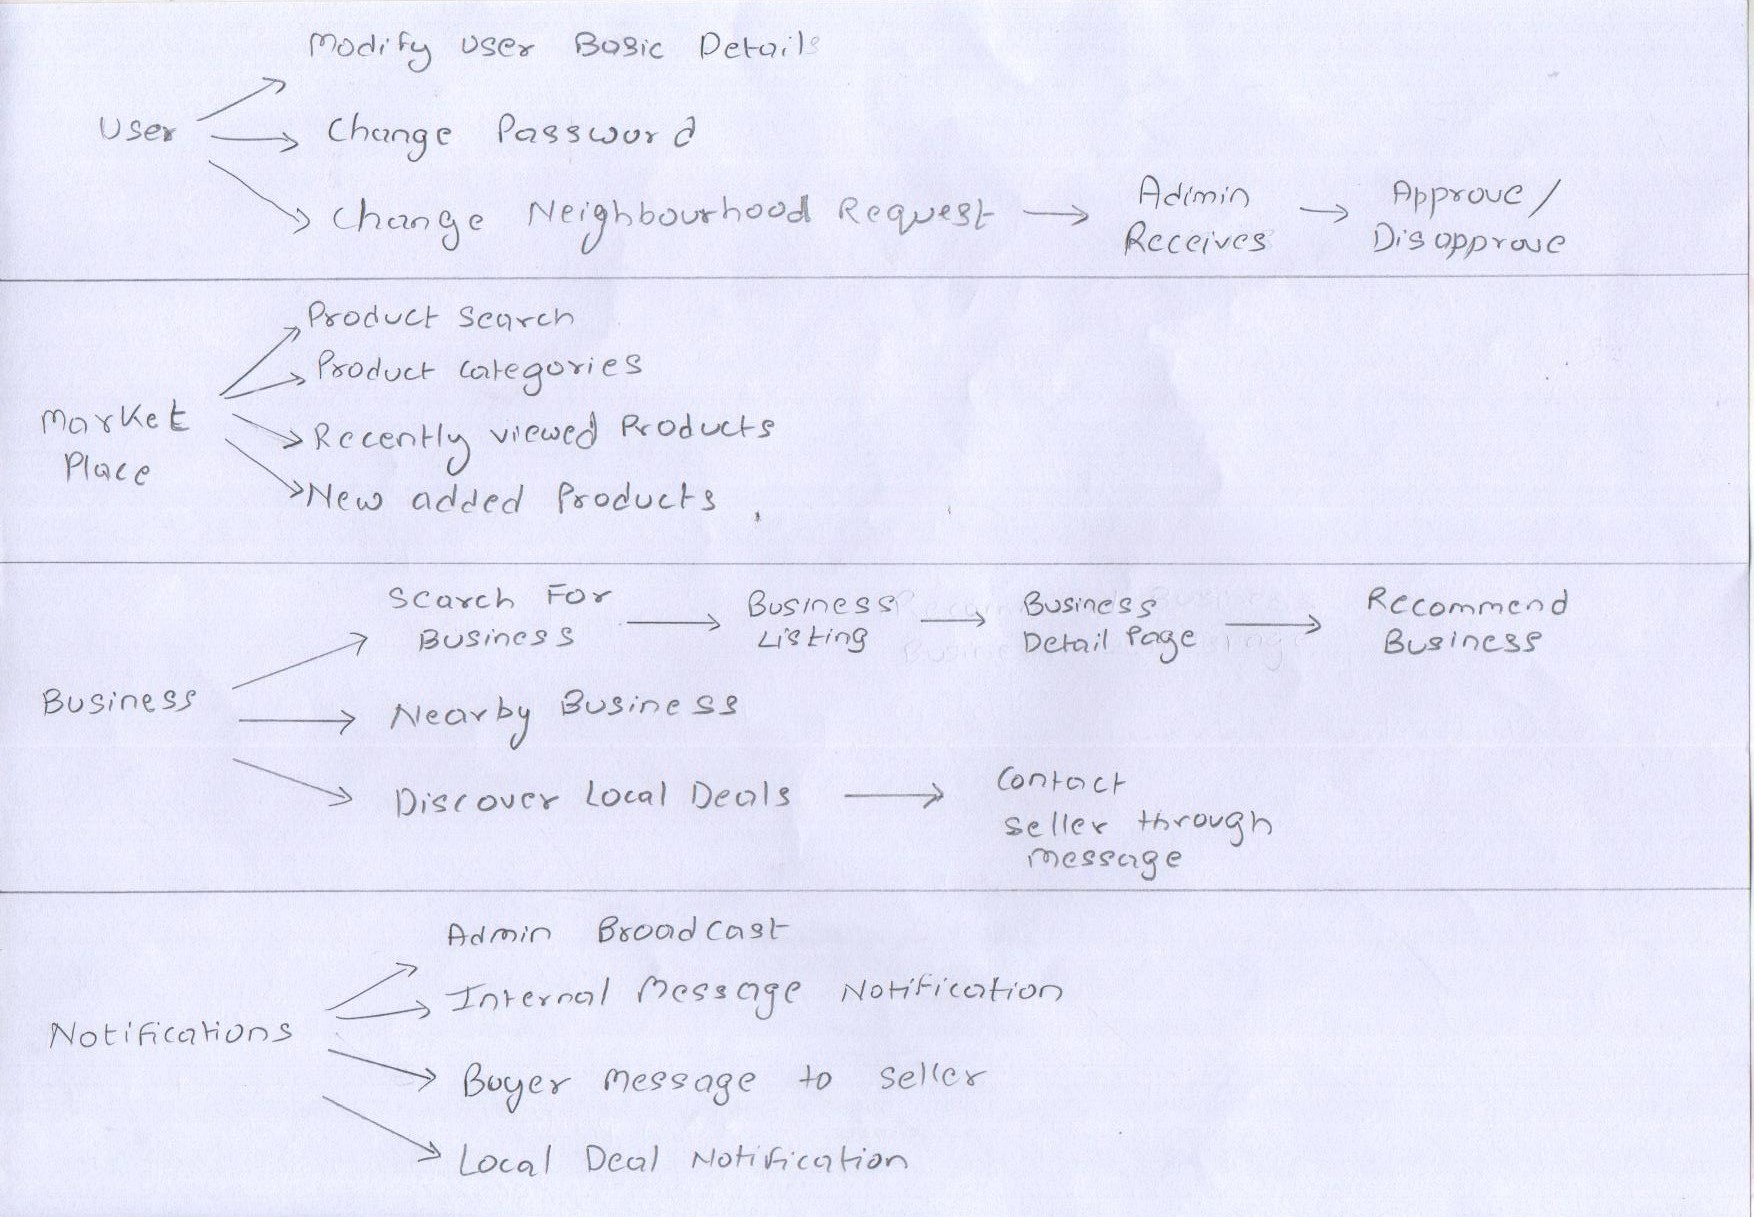 Modify User Basic Details
User
Change Password
Change Neighbourhood Request
Admin
Receives
Approve /
Disapprove
Market
Place
Product Search
Product Categories
Recently viewed Products
New added Products
Business
Search For
Business
Business
Listing
Business
Detail Page
Recommend
Business
Nearby Business
Discover Local Deals
Contact
Seller through
Message
Notifications
Admin Broadcast
Internal Message Notification
Buyer Message to Seller
Local Deal Notification